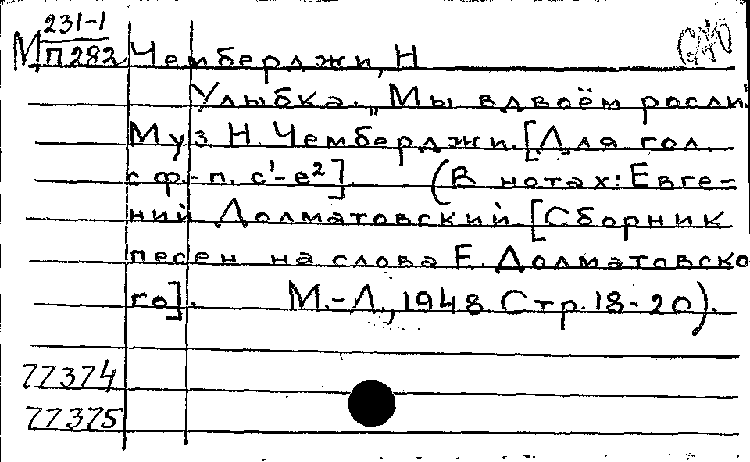 231-1
М П282 Чемберджи, Н
Улыбка. „Мы вдвоём росли"
Муз. Н. Чемберджи. [Для гол.
с ф-п. c¹-e²] (В нотах: Евге=
ний Долматовский. [Сборник
песен на слова Е. Долматовско
го]. М.-Л., 1948. Стр. 18-20).
77374
77375